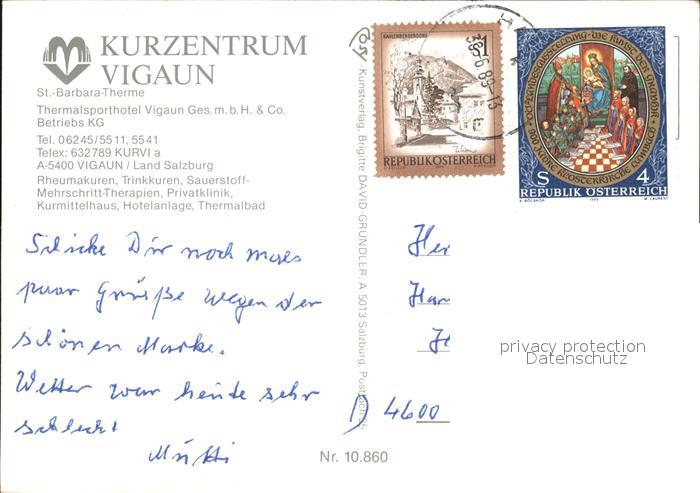 KURZENTRUM
VIGAUN
St.-Barbara-Therme
Thermalsporthotel Vigaun Ges. m. b. H. & Co.
Betriebs KG
Tel. 06245/5511, 5541
Telex: 632789 KURVI a
A-5400 VIGAUN / Land Salzburg
Rheumakuren, Trinkkuren, Sauerstoff-
Mehrschritt-Therapien, Privatklinik,
Kurmittelhaus, Hotelanlage, Thermalbad
Schicke Dir noch mals
paar Grüße wegen der
schönen Marke.
Wetter war heute sehr
schlecht
Mutti
Cosy Kunstverlag, Brigitte DAVID-GRÜNDLER, A 5013 Salzburg, Postfach 25
KAHLENBERGERDORF
REPUBLIK ÖSTERREICH
S 4
REPUBLIK ÖSTERREICH
1989
M. LAURENT
Her
Han
D 4600
privacy protection
Datenschutz
Nr. 10.860